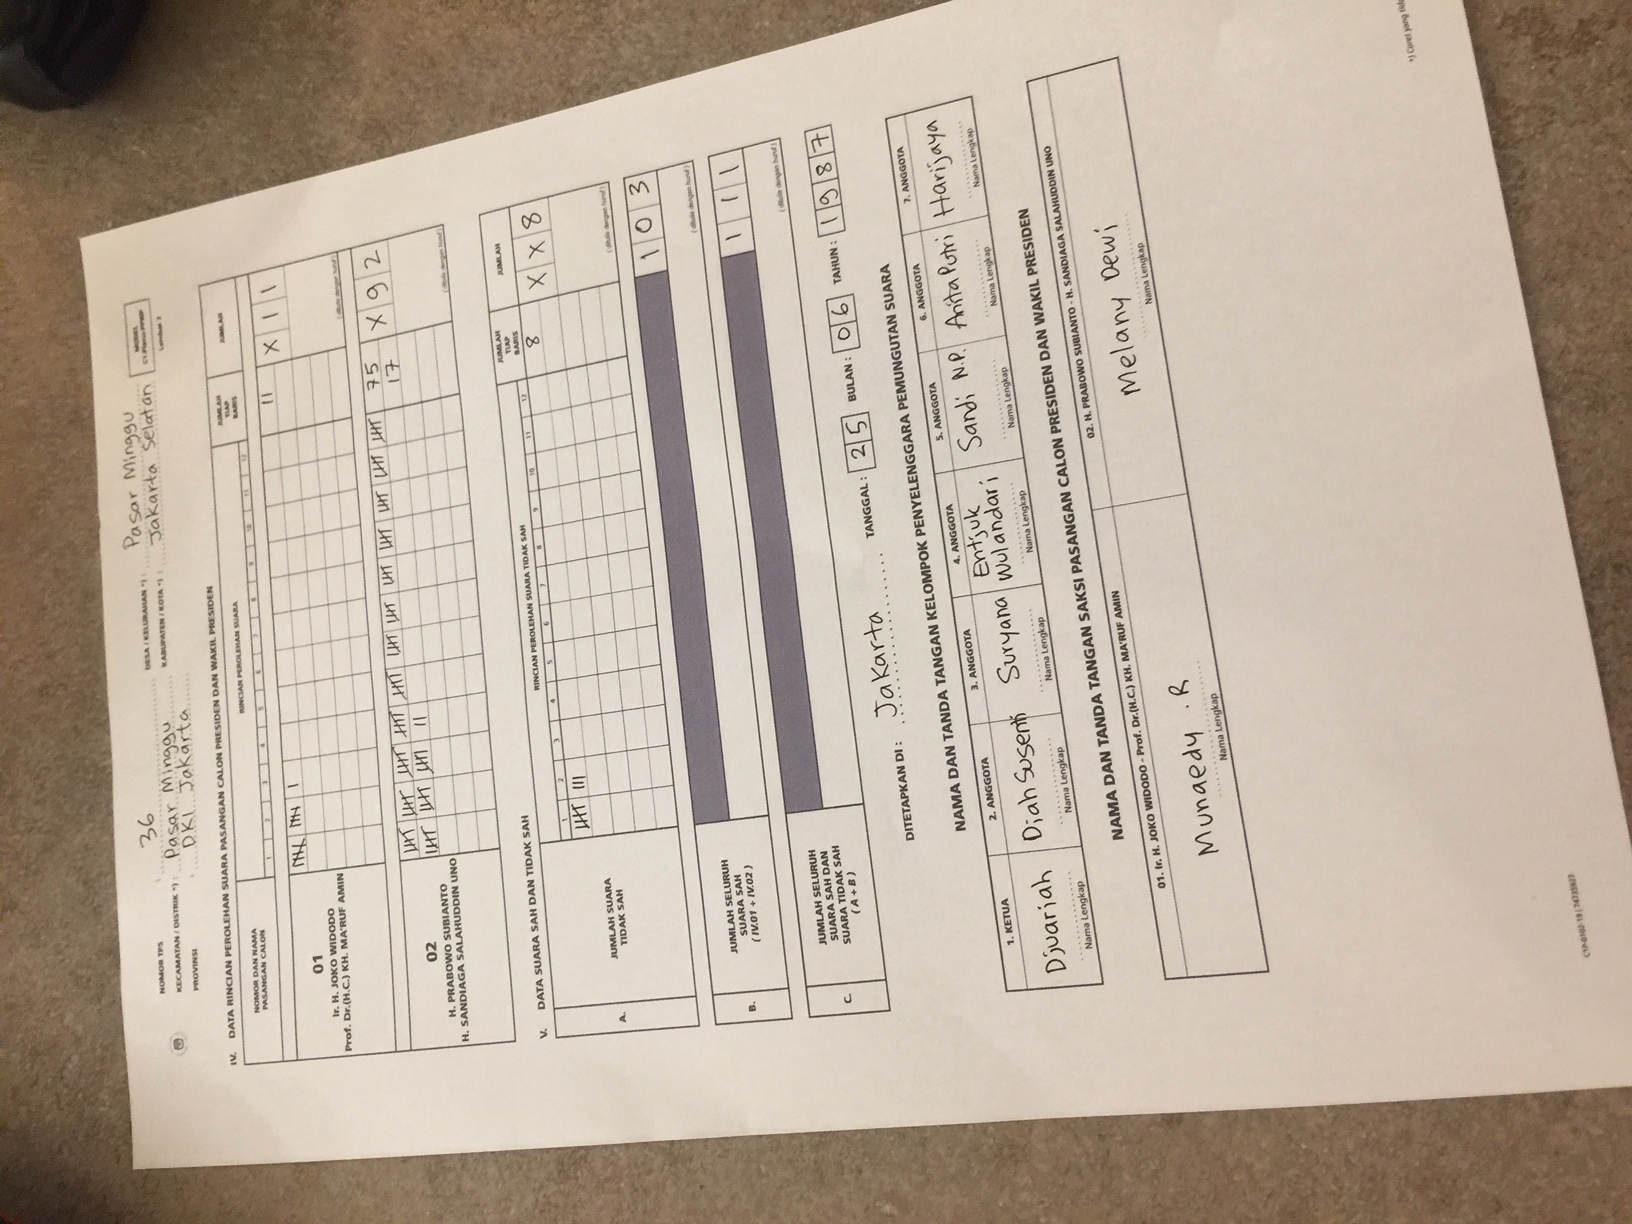 NOMOR TPS : 36
KECAMATAN / DISTRIK *) : Pasar Minggu
PROVINSI : DKI Jakarta
DESA / KELURAHAN *) : Pasar Minggu
KABUPATEN / KOTA *) : Jakarta Selatan
MODEL
C1.Plano-PPWP
Lembar 2
IV. DATA RINCIAN PEROLEHAN SUARA PASANGAN CALON PRESIDEN DAN WAKIL PRESIDEN
NOMOR DAN NAMA
PASANGAN CALON
RINCIAN PEROLEHAN SUARA
1 2 3 4 5 6 7 8 9 10 11 12
JUMLAH
TIAP
BARIS
JUMLAH
01
Ir. H. JOKO WIDODO
Prof. Dr.(H.C.) KH. MA'RUF AMIN
11
X 1 1
(ditulis dengan huruf)
02
H. PRABOWO SUBIANTO
H. SANDIAGA SALAHUDDIN UNO
75
17
X 9 2
(ditulis dengan huruf)
V. DATA SUARA SAH DAN TIDAK SAH
RINCIAN PEROLEHAN SUARA TIDAK SAH
1 2 3 4 5 6 7 8 9 10 11 12
JUMLAH
TIAP
BARIS
JUMLAH
A.
JUMLAH SUARA
TIDAK SAH
8
X X 8
(ditulis dengan huruf)
B.
JUMLAH SELURUH
SUARA SAH
(IV.01 + IV.02)
1 0 3
(ditulis dengan huruf)
C.
JUMLAH SELURUH
SUARA SAH DAN
SUARA TIDAK SAH
(A + B)
1 1 1
(ditulis dengan huruf)
DITETAPKAN DI : Jakarta TANGGAL : 25 BULAN : 06 TAHUN : 1987
NAMA DAN TANDA TANGAN KELOMPOK PENYELENGGARA PEMUNGUTAN SUARA
1. KETUA
Djuariah
Nama Lengkap
2. ANGGOTA
Diah Susenti
Nama Lengkap
3. ANGGOTA
Suryana
Nama Lengkap
4. ANGGOTA
Entjuk
Wulandari
Nama Lengkap
5. ANGGOTA
Sandi N.P.
Nama Lengkap
6. ANGGOTA
Anita Putri
Nama Lengkap
7. ANGGOTA
Harijaya
Nama Lengkap
NAMA DAN TANDA TANGAN SAKSI PASANGAN CALON PRESIDEN DAN WAKIL PRESIDEN
01. Ir. H. JOKO WIDODO - Prof. Dr.(H.C.) KH. MA'RUF AMIN
Munaedy .R
Nama Lengkap
02. H. PRABOWO SUBIANTO - H. SANDIAGA SALAHUDDIN UNO
Melany Dewi
Nama Lengkap
*) Coret yang
C1P-0102-19 | 74735927